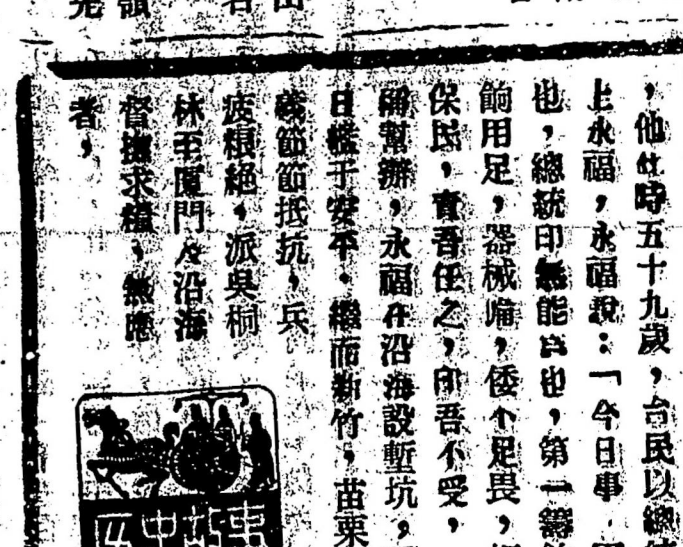 ，他此時五十九歲，台民以總
上永福，永福說：「今日事，
也，總統印無能為也，第一籌
餉用足，器械備，倭不足畏，
保民，責吾任之，印吾不受，
幫辦，永福在沿海設塹坑，
日艦于安平。繼而新竹，苗栗
義節節抵抗，兵
疲糧絕，派吳桐
林至廈門及沿海
督撫求糧，無應
者，
故事